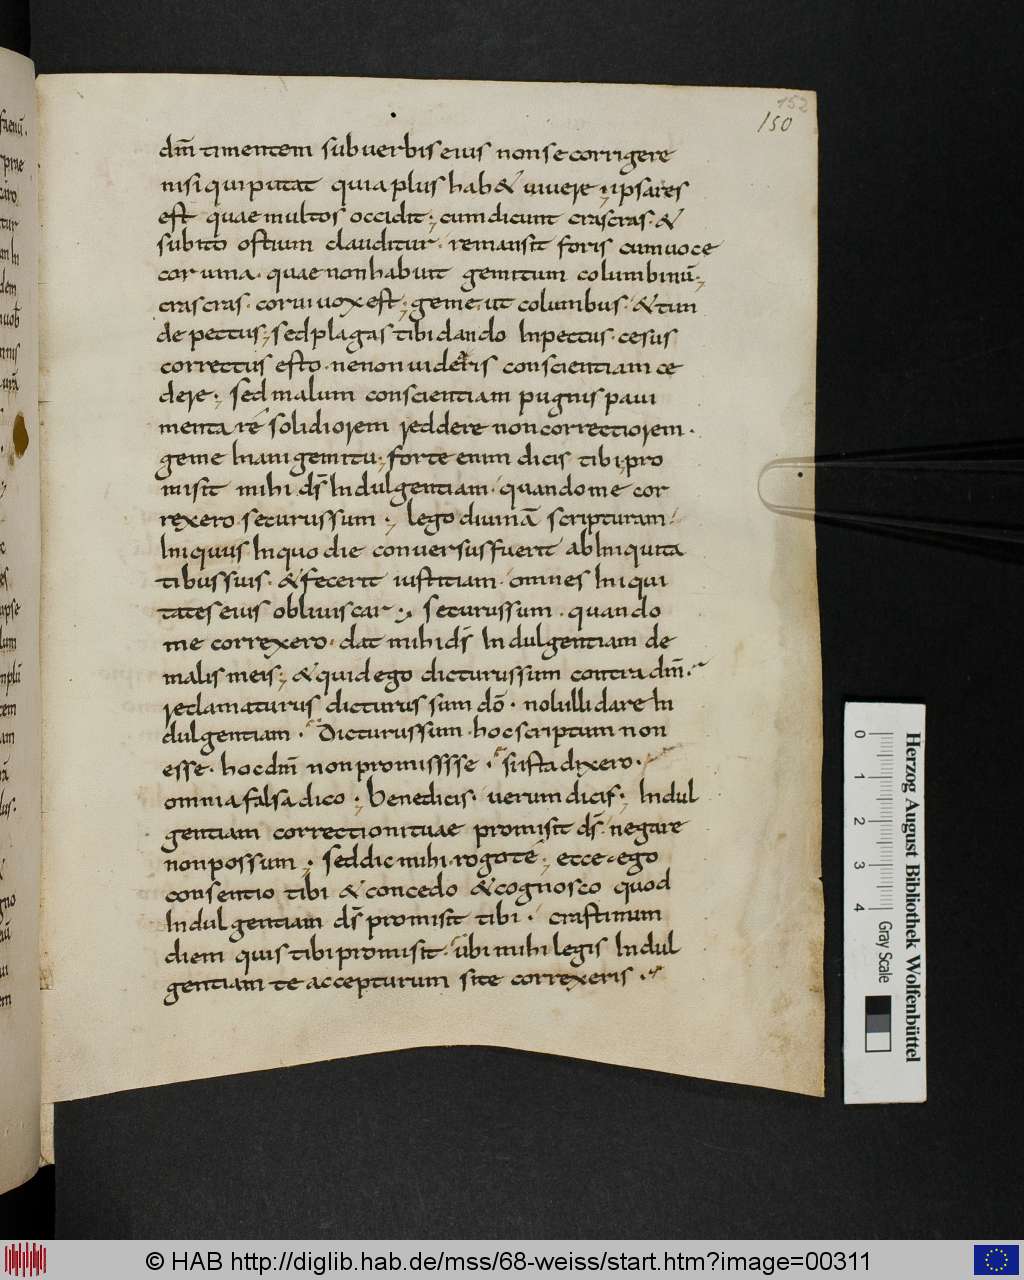 152
150
dm̄ timentem sub uerbis eius non se corrigere
nisi qui putat quia plus hab& uiuere; ipsa res
est quae multos occidit; cum dicunt cras cras. &
subito ostium clauditur. remansit foris cum uoce
coruina. quae non habuit gemitum columbinū;
cras cras. corui uox est; geme ut columbus. & tun
de pectus; sed plagas tibi dando In pectus. cesus
correctus esto. ne non uideris conscientiam ce
dere; sed malam conscientiam pugnis paui
mentare solidiorem reddere non correctiorem.
geme Inani gemitu; forte enim dicis tibi; pro
misit mihi d̄s Indulgentiam. quando me cor
rexero securus sum; lego diuinā scripturam.
Iniquus In quo die conuersus fuerit ab Iniquita
tibus suis. & fecerit iustitiam. omnes Iniqui
tates eius obliuiscar; securus sum. quando
me correxero. dat mihi d̄s Indulgentiam de
malis meis; & quid ego dicturus sum contra dm̄.
reclamaturus dicturus sum dō. nolulli dare In
dulgentiam. Dicturus sum. hoc scriptum non
esse. hoc dm̄ non promissse. si ista dixero.
omnia falsa dico; Benedicis. uerum dicis; Indul
gentiam correctioni tuae promisit d̄s. negare
non possum; sed dic mihi. rogo te; ecce ego
consentio tibi & concedo & cognosco quod
Indulgentiam d̄s promisit tibi. crastinum
diem quis tibi promisit. ubi mihi legis Indul
gentiam te accepturum si te correxeris.
Herzog August Bibliothek Wolfenbüttel
0 1 2 3 4 Gray Scale
© HAB http://diglib.hab.de/mss/68-weiss/start.htm?image=00311